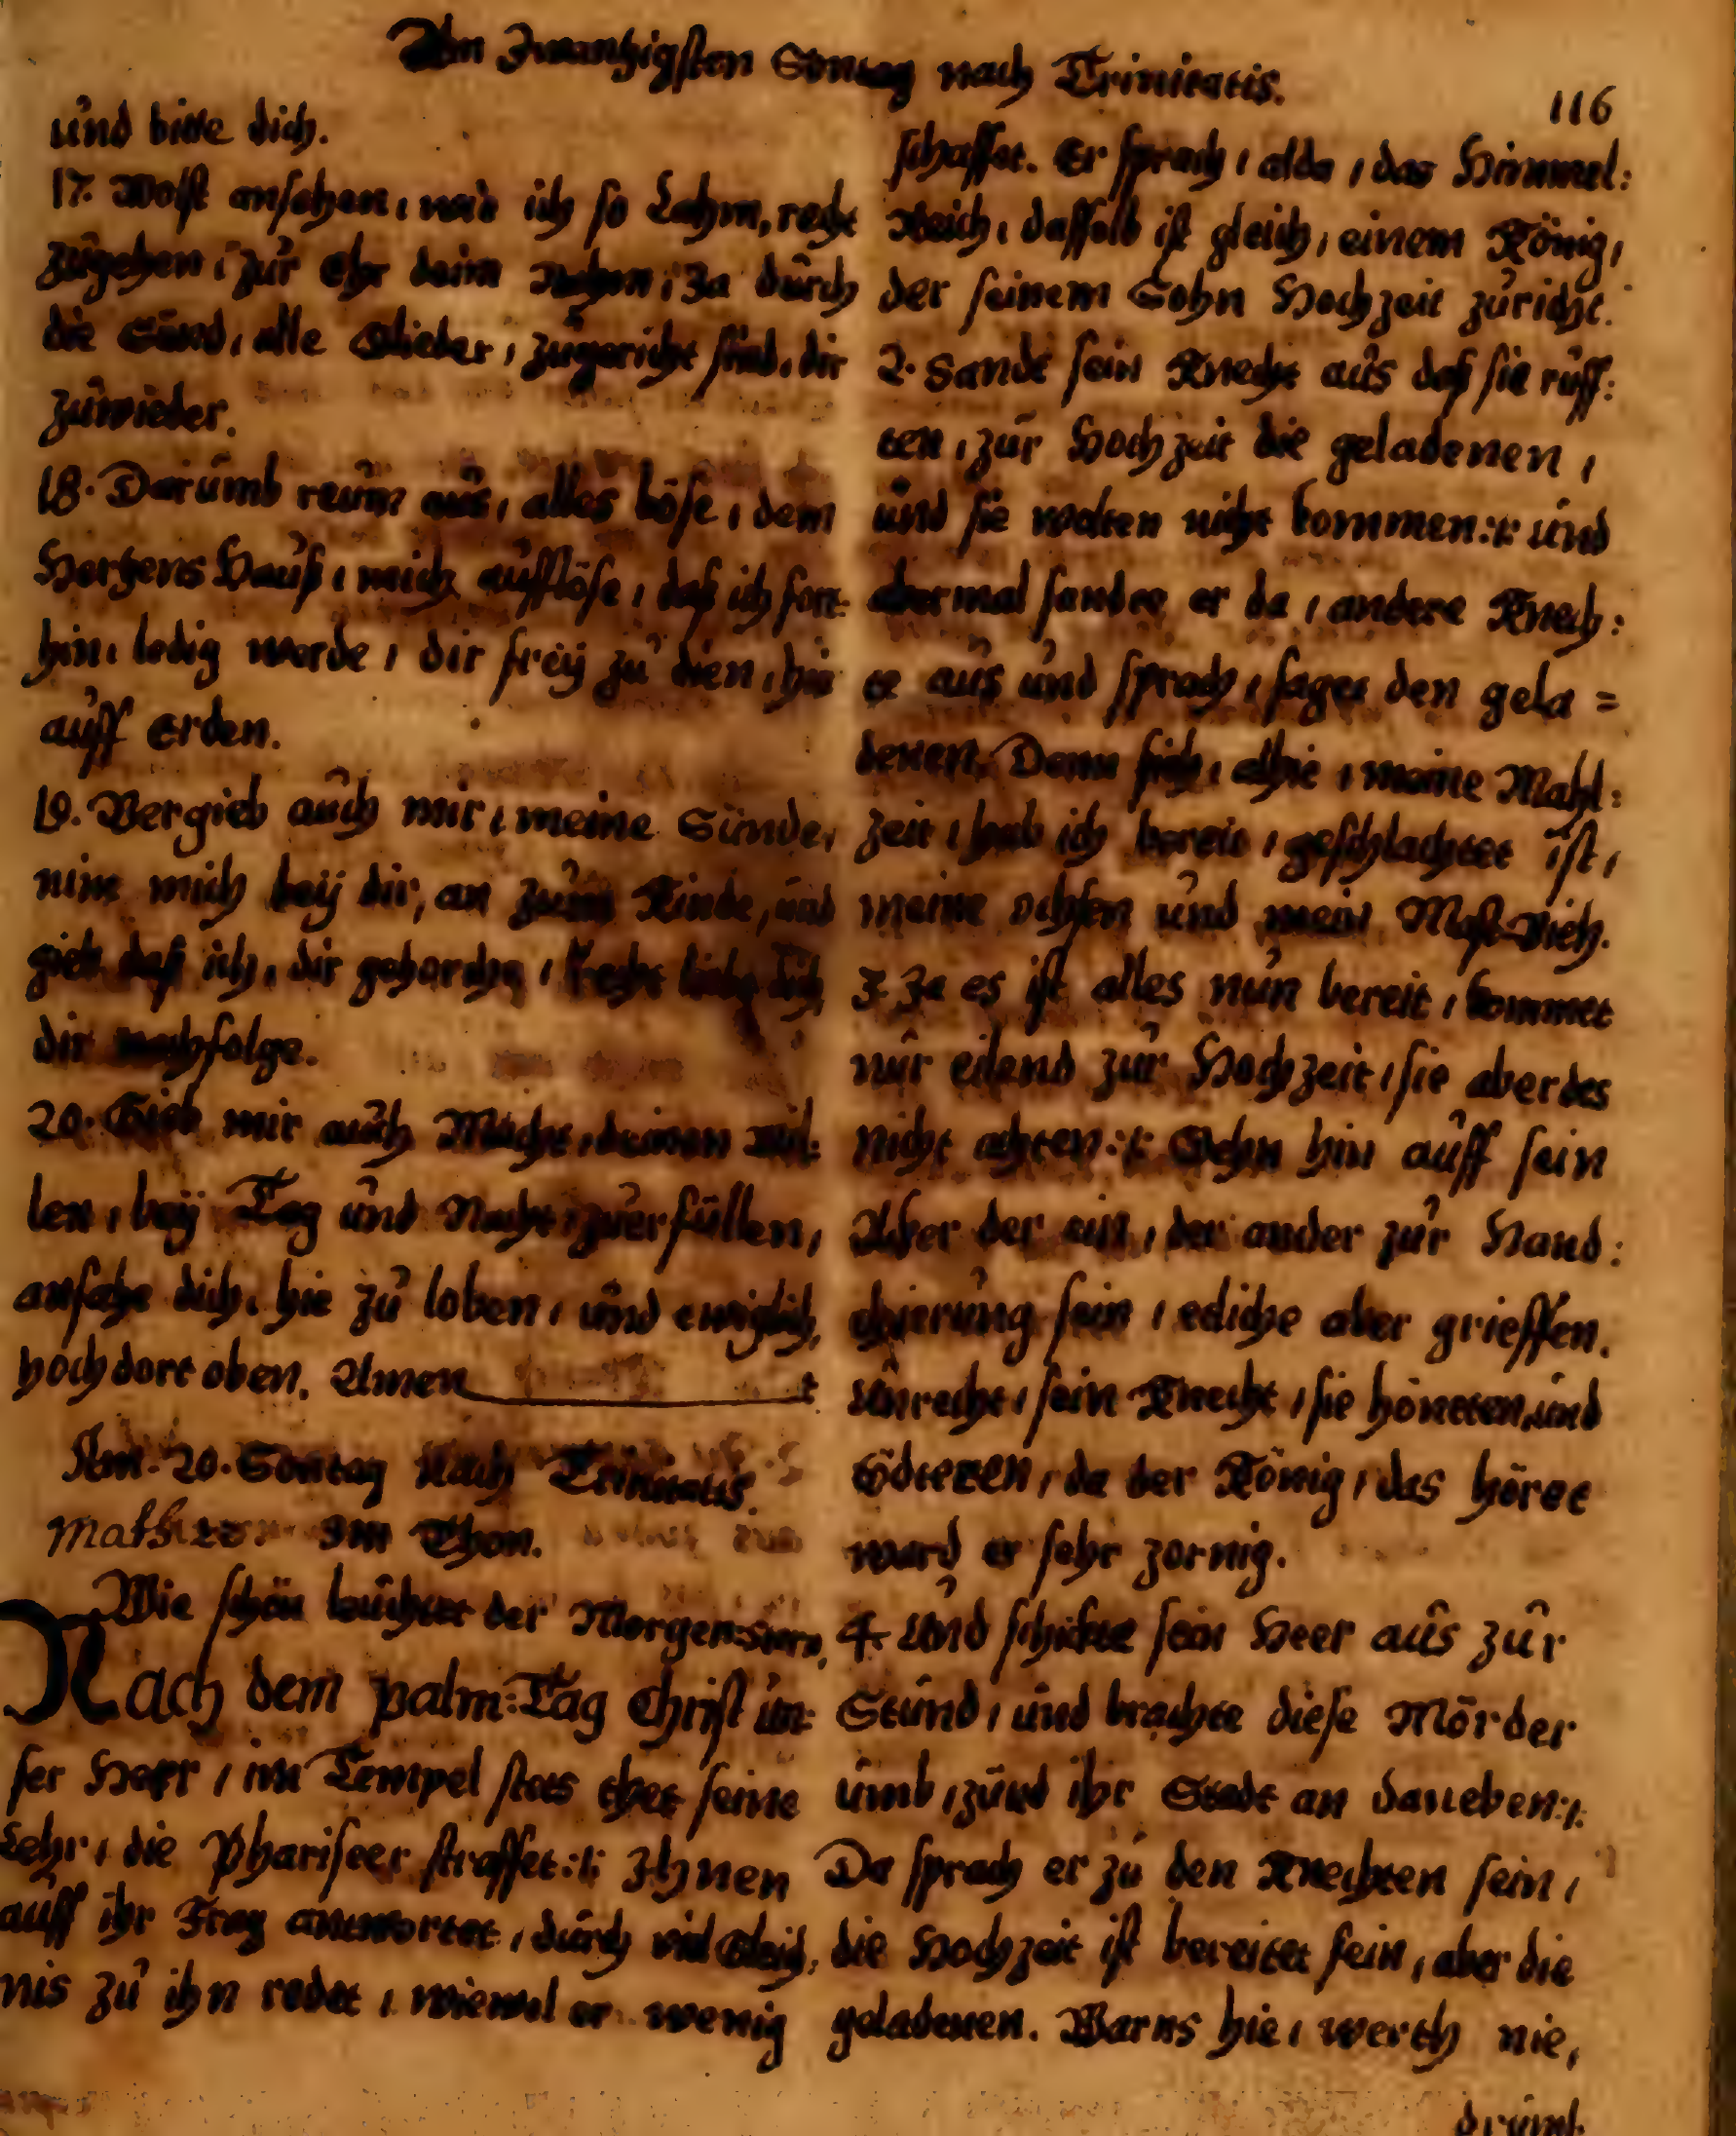 Am Zwantzigsten Sontag nach Trinitatis.
116
und bitte dich.
17. Wolst ansehen, wie ich so Lahm, recht
zugehen, zur Ehr deim Nahmn, Ja durch
die Sünd, alle Glieder, zugericht sind, dir
zuwieder.
18. Darumb reum aus, alles böse, dem
Hertzens Hauß, mich aufflöse, daß ich fort-
hin, ledig werde, dir freÿ zu dien, hie
auff Erden.
19. Vergieb auch mir, meine Sünde,
nim mich beÿ dir, an zum Kinde, und
gieb daß ich, dir gehorche, Recht liebe dich,
dir nachfolge.
20. Gieb mir auch Macht, deinen Wil:
len, beÿ Tag und Nacht, zuerfüllen,
anfahe dich, hie zu loben, und ewiglich,
hoch dort oben. Amen
Am. 20. Sontag Nach Trinitatis.
Math 22. Im Thon.
Wie schön leuchtet der Morgen:stern,
Nach dem palm:Tag Christ un:
ser Herr, im Tempel stets thet seine
Lehr, die Phariseer straffet:,: Ihnen
auff ihr Frag antwortet, durch viel Gleich,
nis zu ihn redet, wiewol er wenig
schaffet. Er sprach, alda, das Himmel:
Reich, dasselb ist gleich, einem König,
der seinem Sohn Hochzeit zuricht.
2. Sandt sein Knecht aus daß sie ruff:
ten, zur Hochzeit die geladenen,
und sie wolten nicht kommen:,: und
abermal sandte er da, andere Knech:
te aus und sprach, saget den gela =
denen, Denn sieh, alhie, meine Mahl:
zeit, hab ich bereit, geschlachtet ist,
meine ochsen und mein Mast-Vieh.
3. Ja es ist alles nun bereit, kommet
nur eilend zur Hochzeit, sie aber des
nicht achten:,: Gehn hin auff sein
Acker der ein, der ander zur Hand:
thierung sein, etliche aber grieffen,
Unrecht, sein Knecht, sie höneten, und
tödteten, da der König, das höret
ward er sehr zornig.
4. Und schickte sein Heer aus zur
Stund, und brachte diese Mörder
umb, zünd ihr Stadt an daneben:,:
Da sprach er zu den Knechten sein,
die Hochzeit ist bereitet fein, aber die
geladenen. Warns hie, werth nie,
drumb